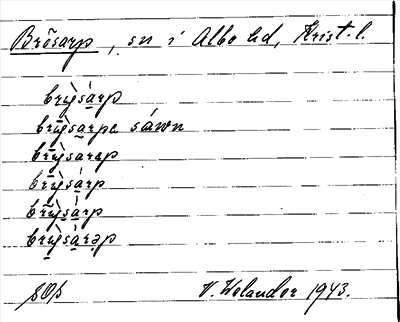 Brösarp, sn i Albo hd, Krist. l.
brỳsárp
brỳsarpa sáwn
brỳsarap
brỳsárp
brỳsárp
brỳsárəp
V. Welander 1943.